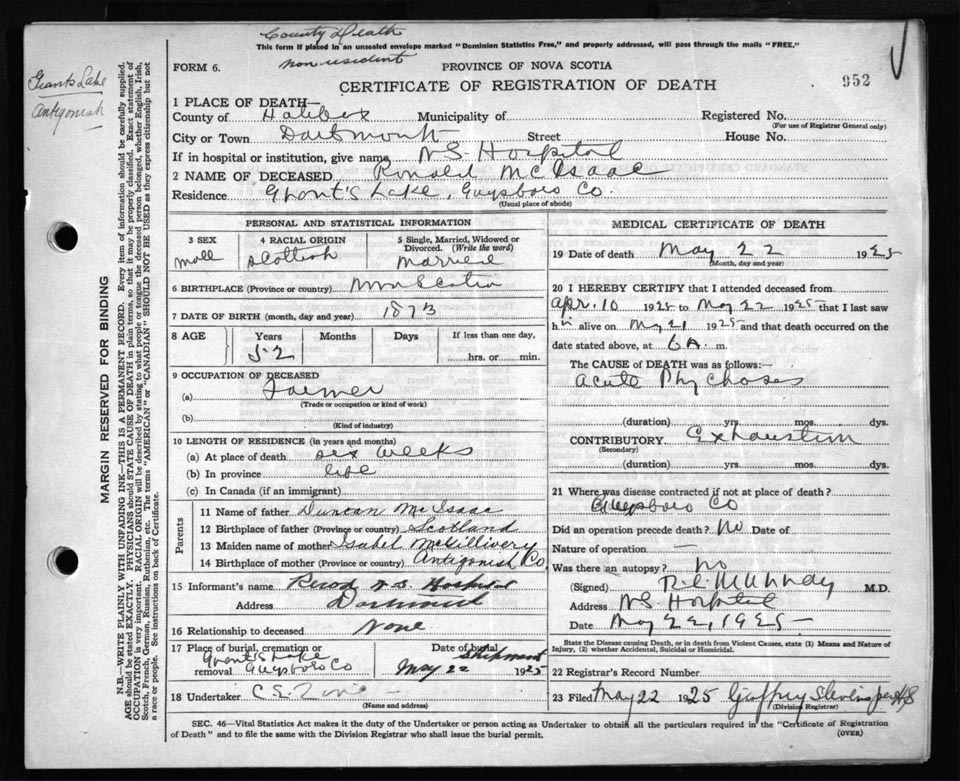 County Death
This form if placed in an unsealed envelope marked "Dominion Statistics Free," and properly addressed, will pass through the mails "FREE."
non resident
FORM 6.
PROVINCE OF NOVA SCOTIA
CERTIFICATE OF REGISTRATION OF DEATH
952
Grants Lake
Antigonish
MARGIN RESERVED FOR BINDING
N.B.—WRITE PLAINLY WITH UNFADING INK—THIS IS A PERMANENT RECORD. Every item of information should be carefully supplied.
AGE should be stated EXACTLY. PHYSICIANS should STATE CAUSE OF DEATH in plain terms, so that it may be properly classified. Exact statement of
OCCUPATION is very important. RACIAL ORIGIN will be described by stating to what people or tongue the deceased person belonged, whether English, Irish,
Scotch, French, German, Russian, Ruthenian, etc. The terms "AMERICAN" or "CANADIAN" SHOULD NOT BE USED as they express citizenship but not
a race or people. See instructions on back of Certificate.
1 PLACE OF DEATH—
County of Halifax Municipality of Registered No.
(For use of Registrar General only)
City or Town Dartmouth Street House No.
If in hospital or institution, give name N.S. Hospital
2 NAME OF DECEASED Ronald McIsaac
Residence Ghont's Lake, Guysboro Co.
(Usual place of abode)
PERSONAL AND STATISTICAL INFORMATION
3 SEX
male
4 RACIAL ORIGIN
Scottish
5 Single, Married, Widowed or Divorced. (Write the word)
Married
6 BIRTHPLACE (Province or country) Nova Scotia
7 DATE OF BIRTH (month, day and year) 1873
8 AGE Years Months Days If less than one day,
52 hrs. or min.
9 OCCUPATION OF DECEASED
(a) Farmer
(Trade or occupation or kind of work)
(b)
(Kind of industry)
10 LENGTH OF RESIDENCE (in years and months)
(a) At place of death six weeks
(b) In province life
(c) In Canada (if an immigrant)
Parents
11 Name of father Duncan McIsaac
12 Birthplace of father (Province or country) Scotland
13 Maiden name of mother Isabel McGillivery
14 Birthplace of mother (Province or country) Antigonish Co.
15 Informant's name Record N.S. Hospital
Address Dartmouth
16 Relationship to deceased None
17 Place of burial, cremation or removal Grant's Lake Guysboro Co
Date of burial Shipment
May 22 1925
18 Undertaker C E
(Name and address)
MEDICAL CERTIFICATE OF DEATH
19 Date of death May 22 1925
(Month, day and year)
20 I HEREBY CERTIFY that I attended deceased from
Apr. 10 1925 to May 22 1925 that I last saw
him alive on May 21 1925 and that death occurred on the
date stated above, at 6 A. m.
The CAUSE OF DEATH was as follows:—
Acute Phychoses
(duration) yrs. mos. dys.
CONTRIBUTORY Exhaustion
(Secondary)
(duration) yrs. mos. dys.
21 Where was disease contracted if not at place of death?
Guysboro Co
Did an operation precede death? No Date of
Nature of operation —
Was there an autopsy? No
(Signed) R.C. Murray M.D.
Address N.S. Hospital
Date May 22, 1925
State the Disease causing Death, or in death from Violent Causes, state (1) Means and Nature of Injury, (2) whether Accidental, Suicidal or Homicidal.
22 Registrar's Record Number
23 Filed May 22 1925 Geoffrey Stevens per HS
(Division Registrar)
SEC. 46—Vital Statistics Act makes it the duty of the Undertaker or person acting as Undertaker to obtain all the particulars required in the "Certificate of Registration
of Death" and to file the same with the Division Registrar who shall issue the burial permit.
(OVER)